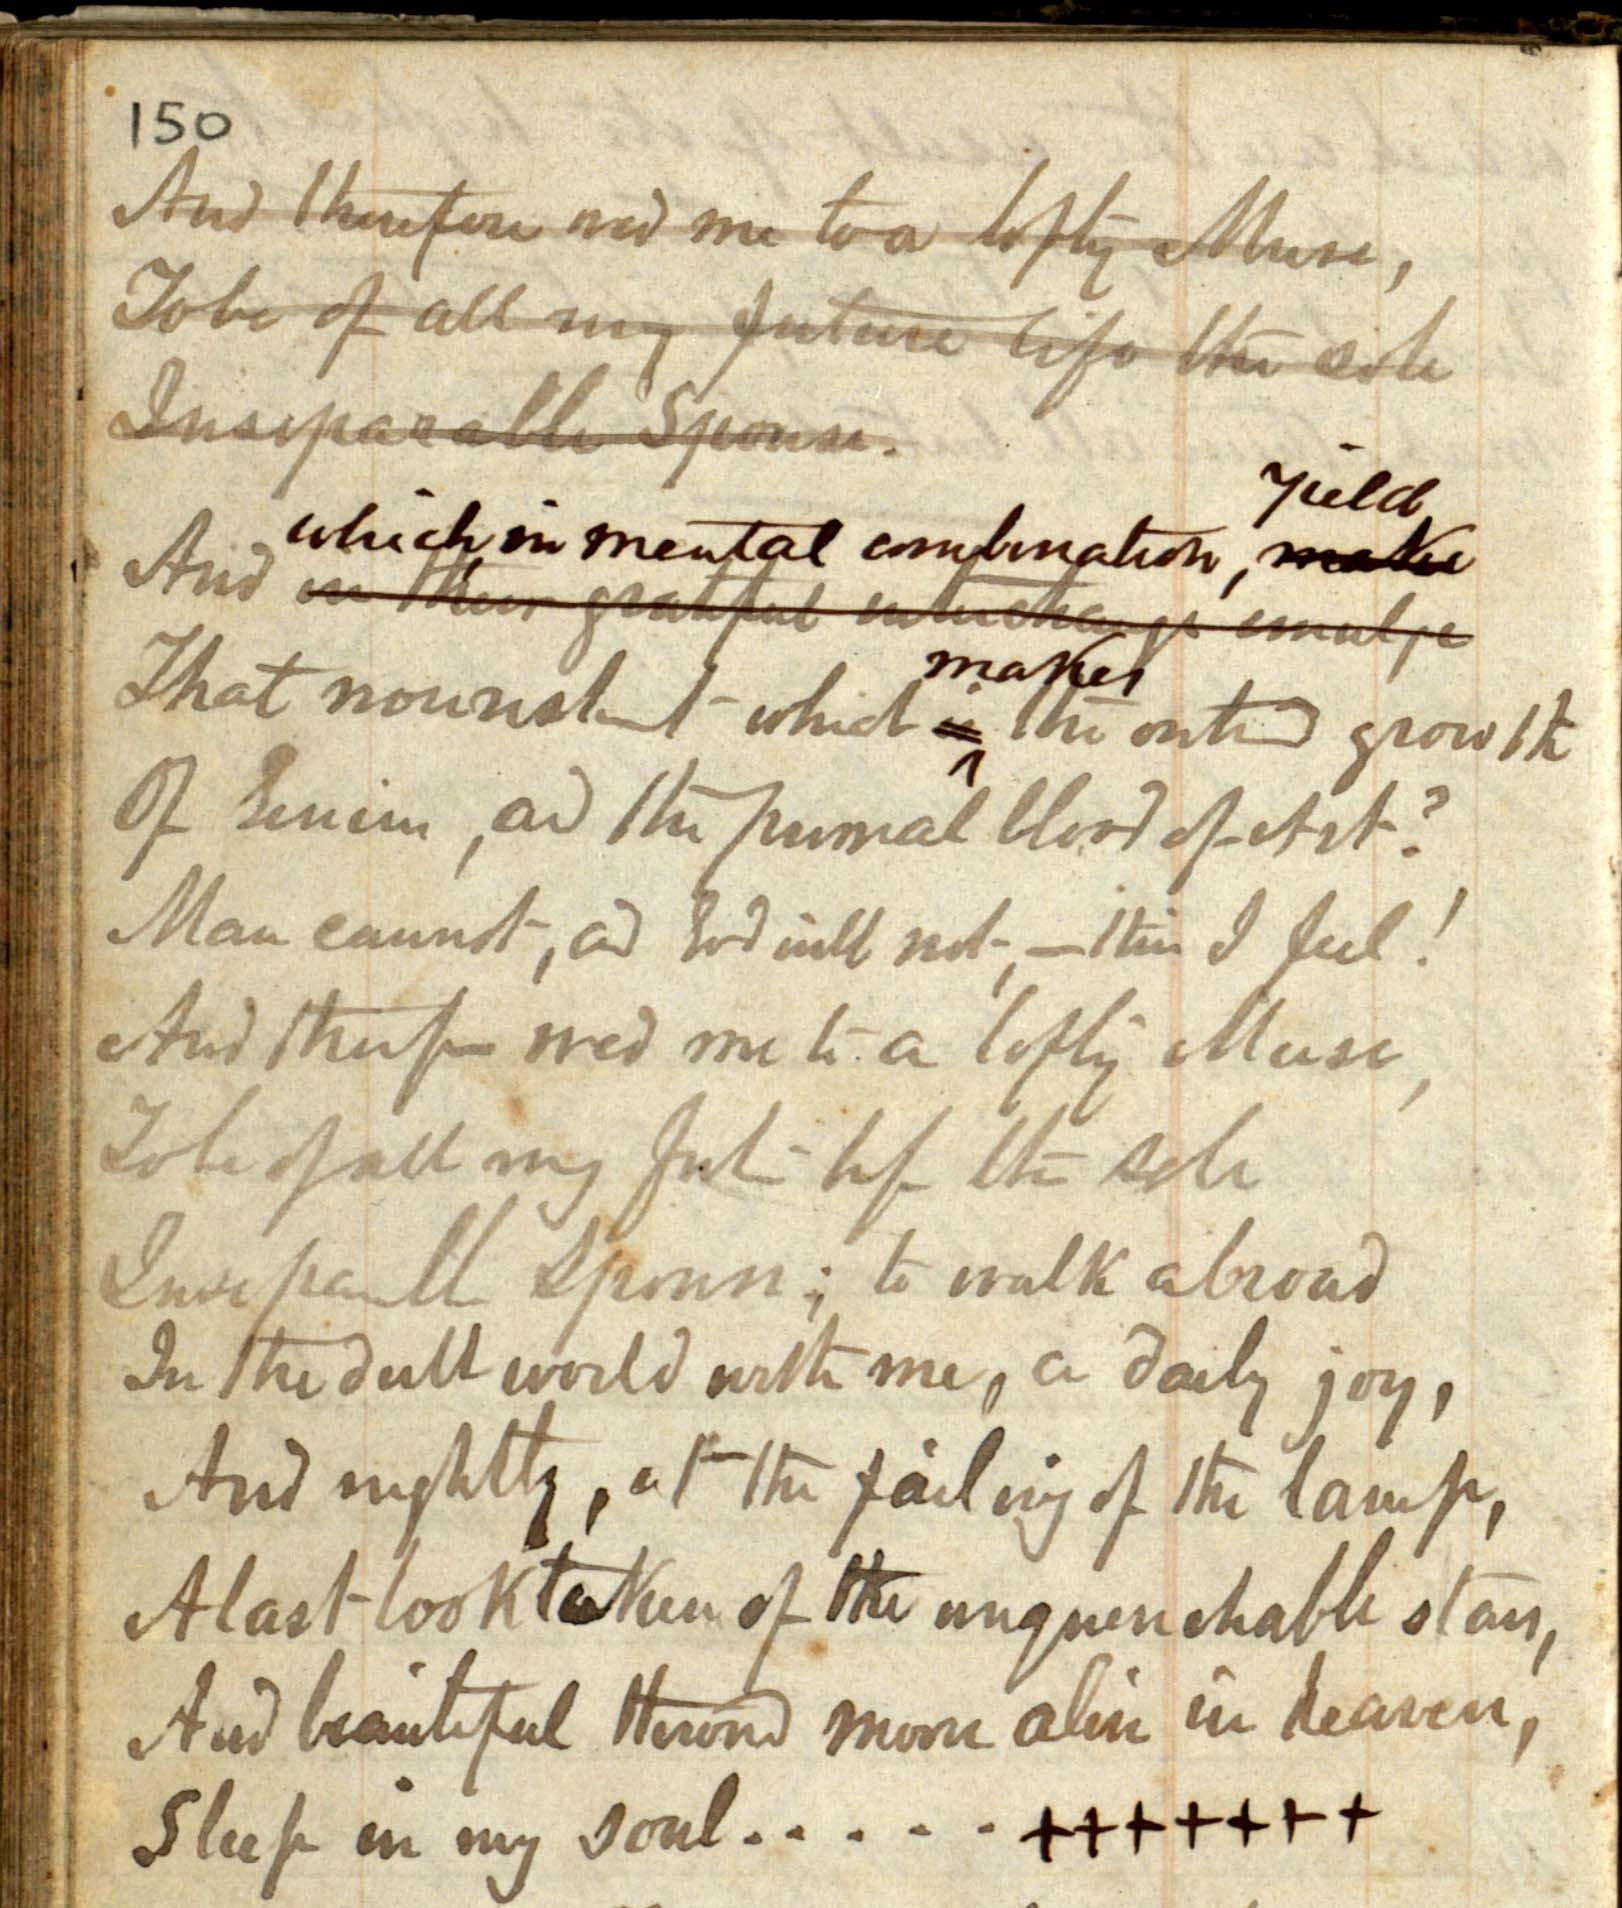 150
And therefore wed me to a lofty Muse,
To be of all my future life the sole
Inseparable Spouse.
yield
which, in mental combination, make
And in their grateful interchange emulge
makes
That nourishmt which is the outwd growth
Of Genius, ad the primal blood of Art?
Man cannot, ad God will not, — this I feel!
And therefe wed me to a lofty Muse,
To be of all my life the sole
Spouse; to walk abroad
In the dull world with me, a daily joy,
And nightly, at the failing of the lamp,
A last look taken of the unquenchable stars,
And beautiful throned moon alive in heaven,
Sleep in my soul . . . . . . +++++++